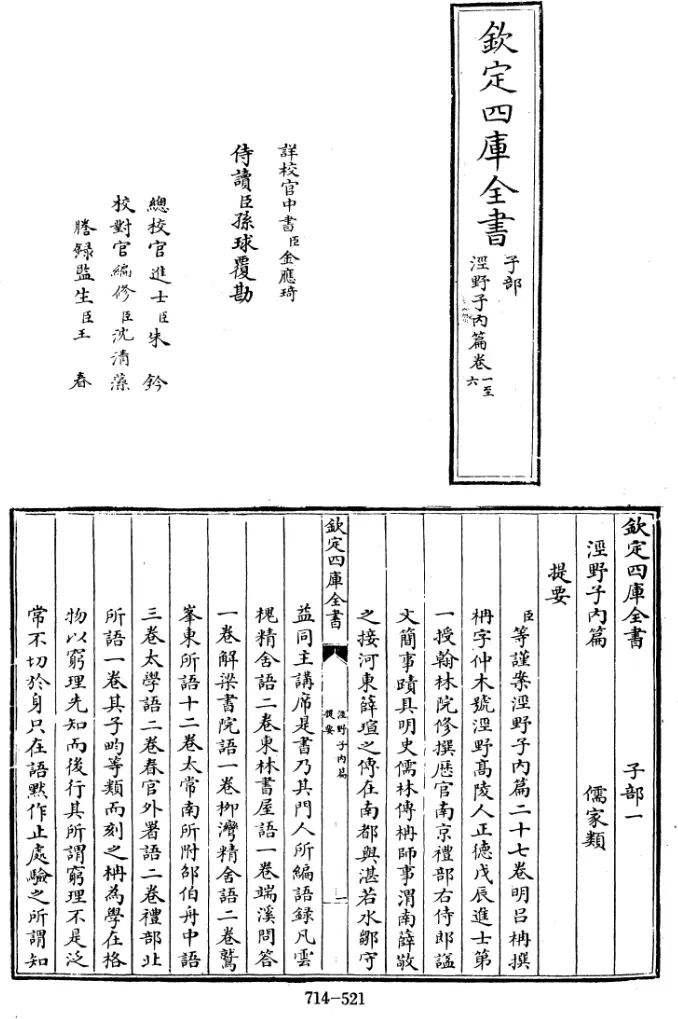 欽定四庫全書
子部
涇野子內篇卷一至六
詳校官中書臣金應琦
侍讀臣孫球覆勘
總校官進士臣朱鈐
校對官編修臣沈清藻
謄錄監生臣王春
欽定四庫全書 子部一
涇野子內篇 儒家類
提要
臣等謹案涇野子內篇二十七卷明呂柟撰
柟字仲木號涇野高陵人正德戊辰進士第
一授翰林院修撰歷官南京禮部右侍郎諡
文簡事蹟具明史儒林傳柟師事渭南薛敬
之接河東薛瑄之傳在南都與湛若水鄒守
欽定四庫全書
涇野子內篇
提要
一
益同主講席是書乃其門人所編語錄凡雲
槐精舍語二卷東林書屋語一卷端溪問答
一卷解梁書院語一卷柳灣精舍語二卷鷲
峯東所語十二卷太常南所附邵伯舟中語
三卷太學語二卷春官外署語二卷禮部北
所語一卷其子畇等類而刻之柟為學在格
物以窮理先知而後行其所謂窮理不是泛
常不切於身只在語默作止處驗之所謂知
714-521